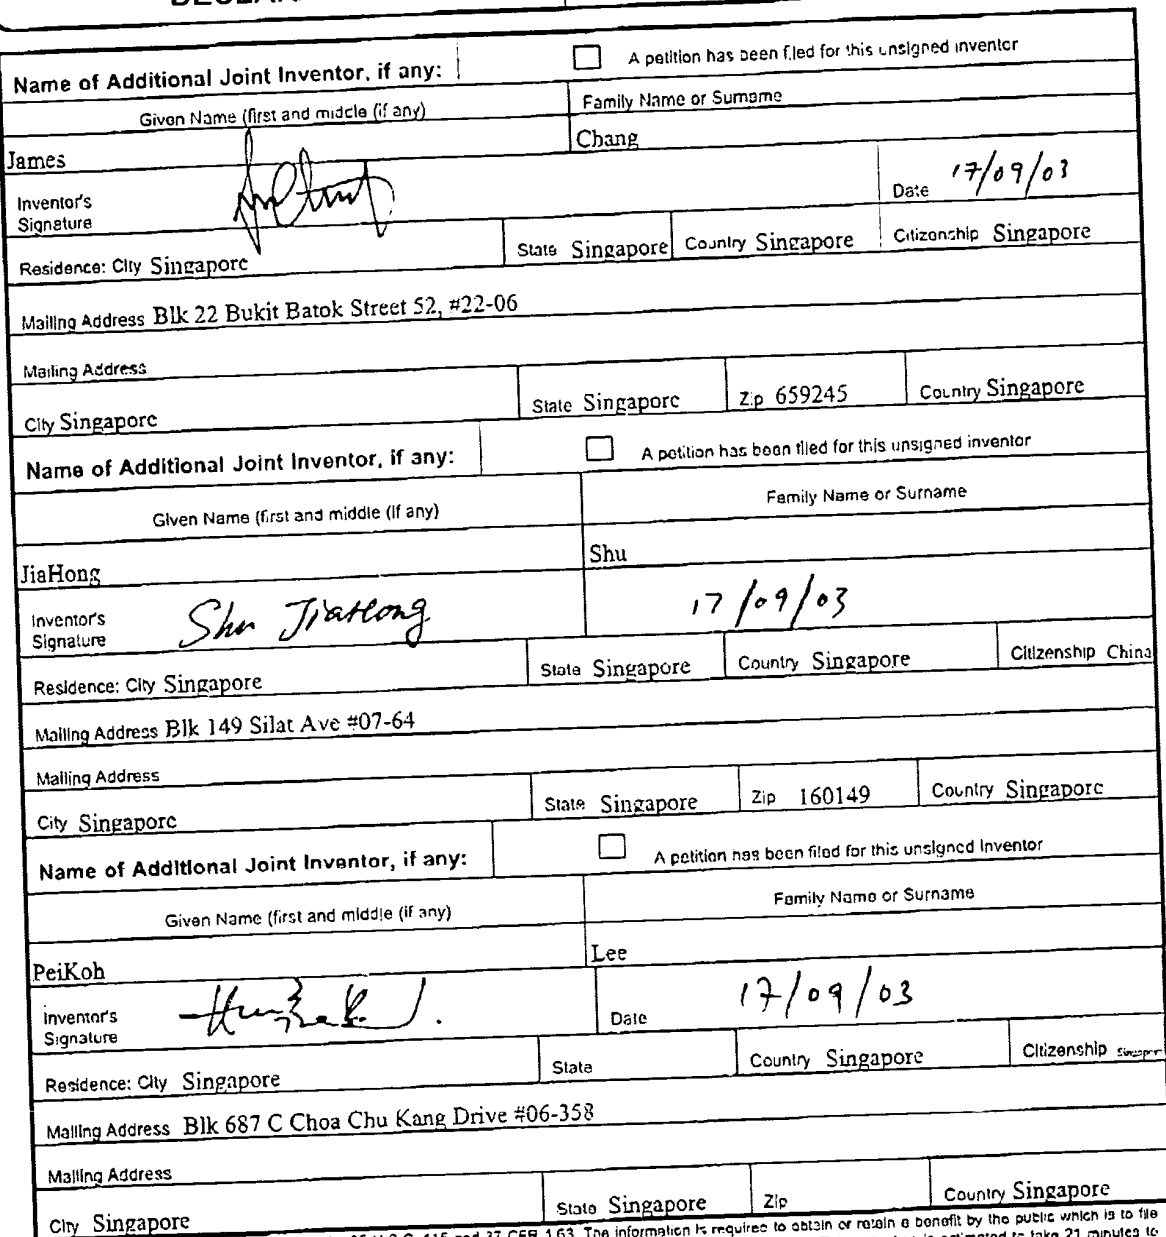 Name of Additional Joint Inventor, if any: A petition has been filed for this unsigned inventor
Given Name (first and middle (if any) Family Name or Surname
James Chang
Inventor's Signature Date 17/09/03
Residence: City Singapore State Singapore Country Singapore Citizenship Singapore
Mailing Address Blk 22 Bukit Batok Street 52, #22-06
Mailing Address
City Singapore State Singapore Zip 659245 Country Singapore
Name of Additional Joint Inventor, if any: A petition has been filed for this unsigned inventor
Given Name (first and middle (if any) Family Name or Surname
JiaHong Shu
Inventor's Signature Shu JiaHong 17/09/03
Residence: City Singapore State Singapore Country Singapore Citizenship China
Mailing Address Blk 149 Silat Ave #07-64
Mailing Address
City Singapore State Singapore Zip 160149 Country Singapore
Name of Additional Joint Inventor, if any: A petition has been filed for this unsigned inventor
Given Name (first and middle (if any) Family Name or Surname
PeiKoh Lee
Inventor's Signature Date 17/09/03
Residence: City Singapore State Country Singapore Citizenship Singapor
Mailing Address Blk 687 C Choa Chu Kang Drive #06-358
Mailing Address
City Singapore State Singapore Zip Country Singapore
115 and 37 CFR 1.63. The information is required to obtain or retain a benefit by the public which is to file
estimated to take 21 minutes to